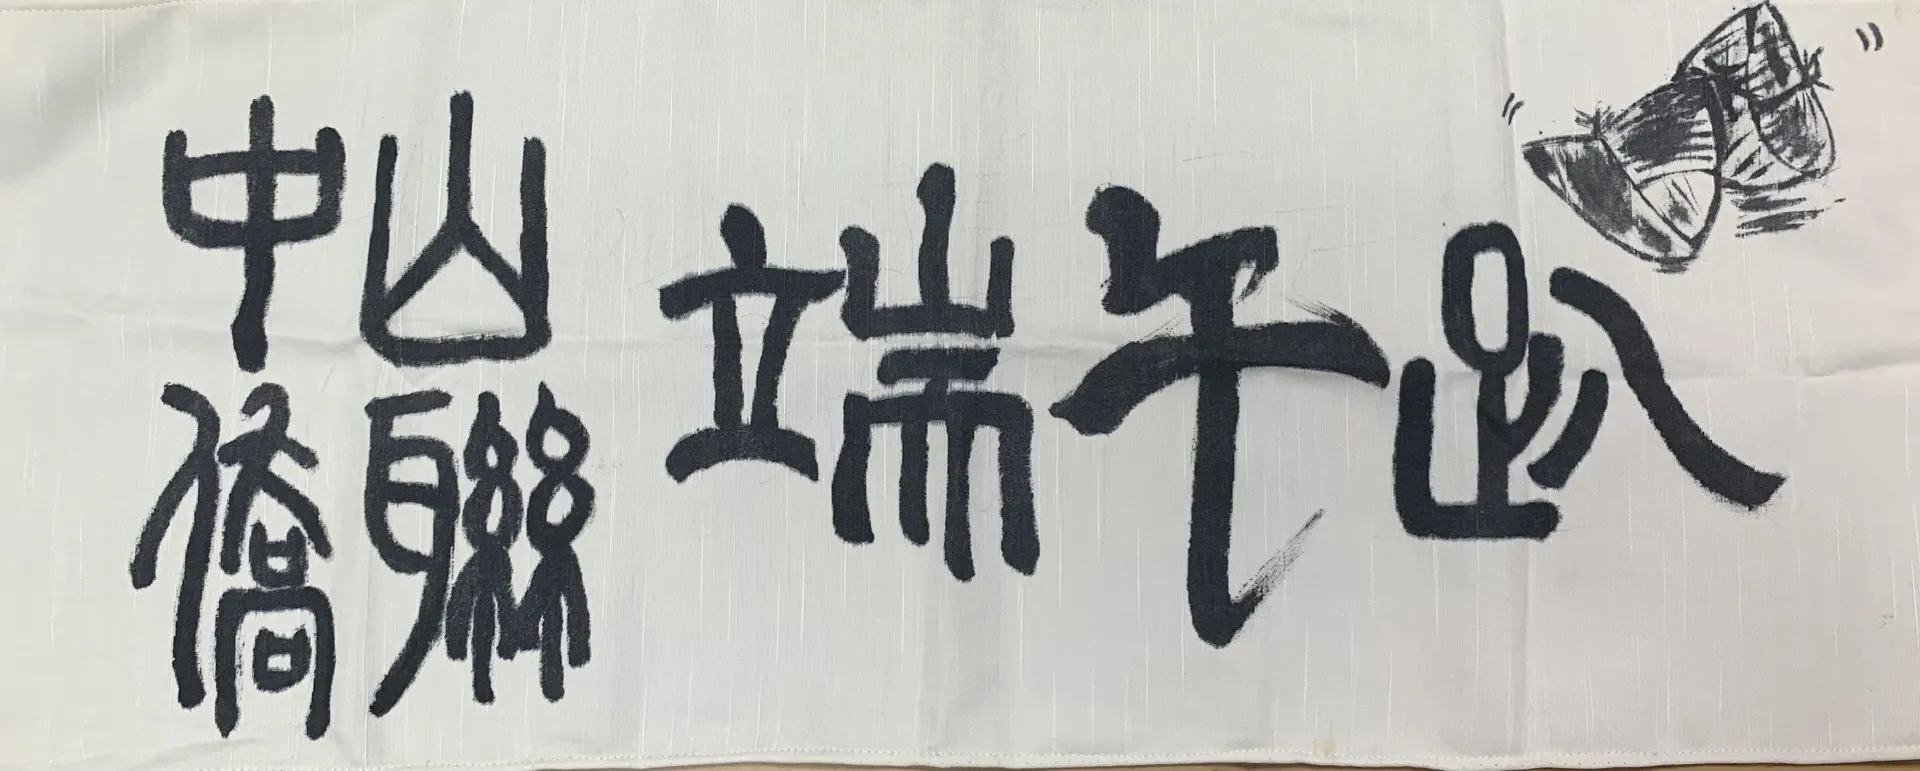 中山
僑聯
端午趴